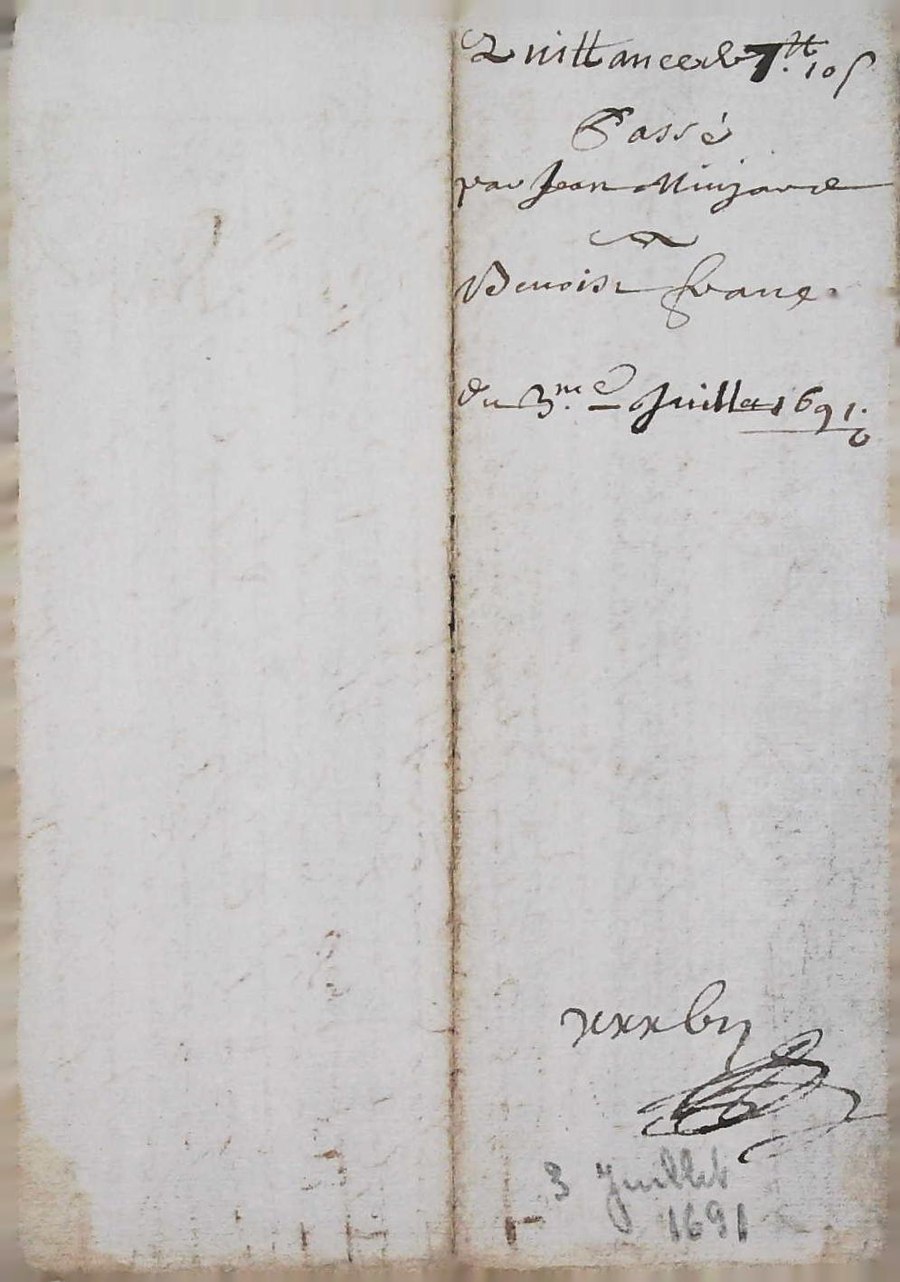 Quittance de 7.tt 10 s
Passé
par Jean
Benoist franç.
du 3.me Juillet 1691.
3 Juillet
1691